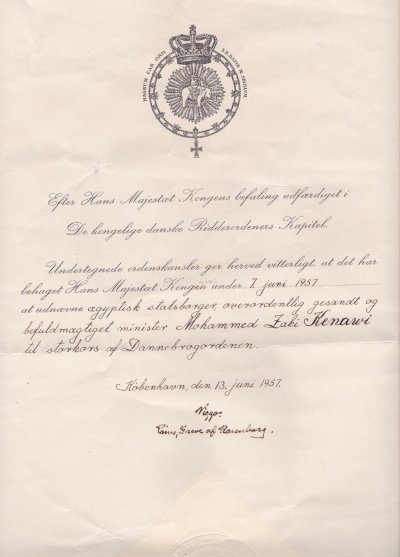 Efter Hans Majestæt Kongens befaling udfærdiget i
De kongelige danske Ridderordeners Kapitel.
Undertegnede ordenskansler gør herved vitterligt, at det har
behaget Hans Majestæt Kongen under 1 juni 1957
at udnævne ægyptisk statsborger, overordentlig gesandt og
befuldmægtiget minister Mohammed Zaki Kenawi
til storkors af Dannebrogordenen.
København, den 13. juni 1957.
Viggo.
Prins, Greve af Rosenborg.